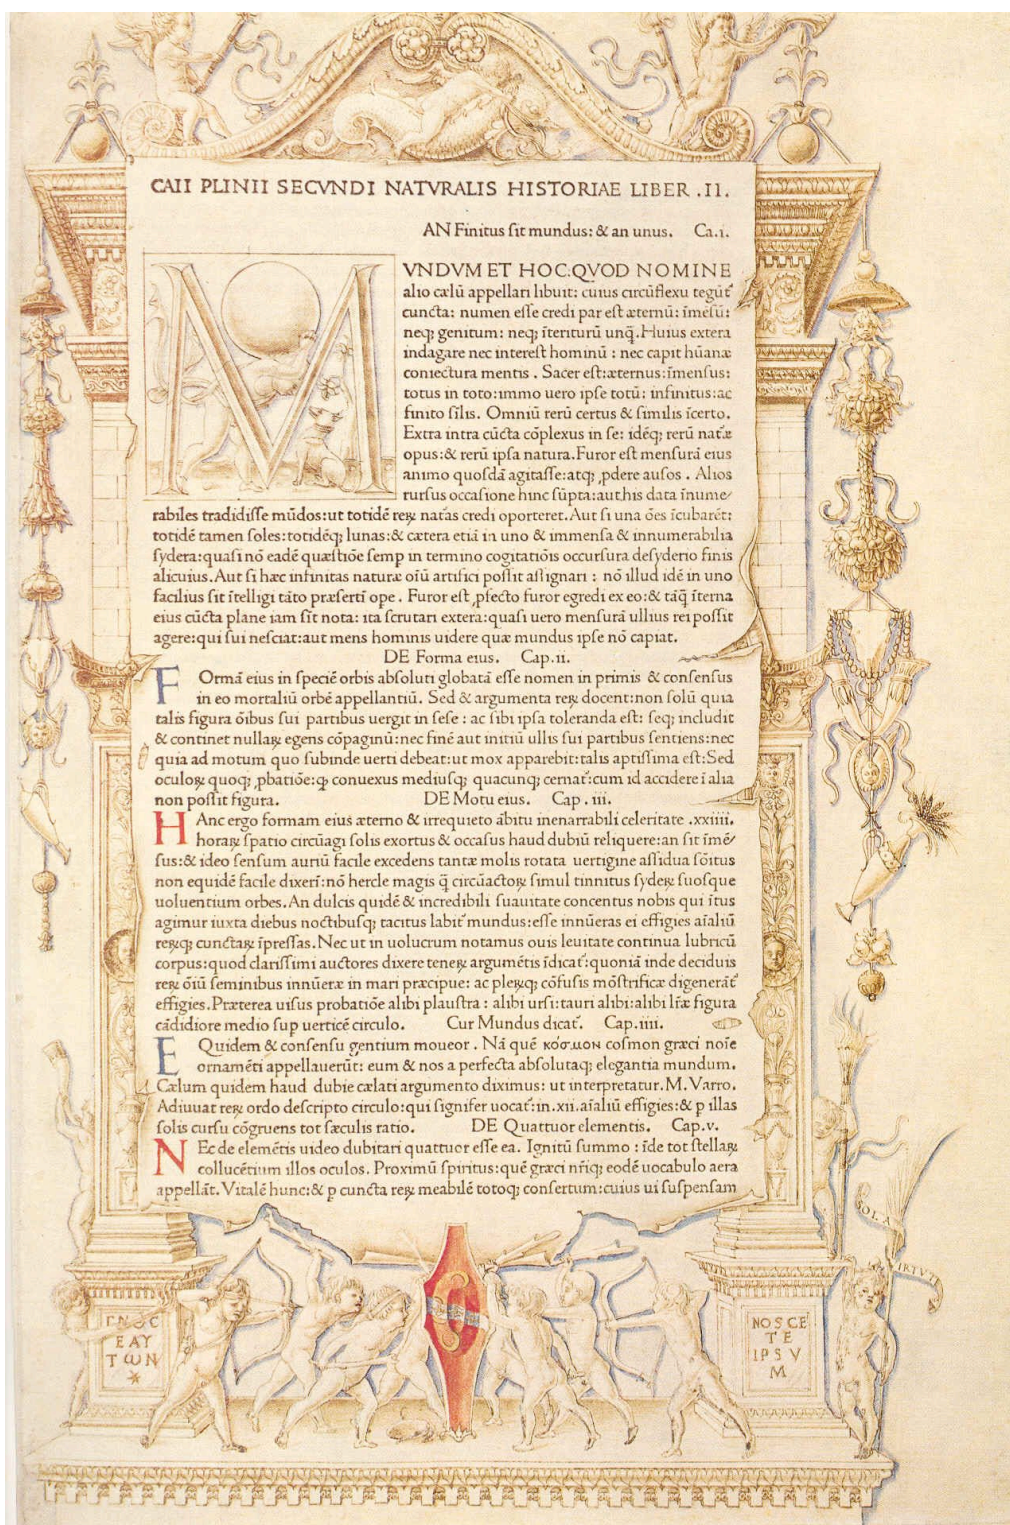 CAII PLINII SECVNDI NATVRALIS HISTORIAE LIBER .II.
AN Finitus ſit mundus: & an unus. Ca.i.
MVNDVM ET HOC:QVOD NOMINE
alio cælū appellari libuit: cuius circūflexu tegūt̄
cuncta: numen eſſe credi par eſt æternū: īmēſū:
neqꝫ genitum: neqꝫ īteriturū unq̄. Huius extera
indagare nec intereſt hominū : nec capit hūanæ
coniectura mentis . Sacer eſt:æternus:īmenſus:
totus in toto:immo uero ipſe totū: infinitus:ac
finito ſilis. Omniū rerū certus & ſimilis īcerto.
Extra intra cūcta cōplexus in ſe: idēqꝫ rerū nat̄æ
opus:& rerū ipſa natura.Furor eſt menſurā eius
animo quoſdā agitaſſe:atqꝫ ꝓdere auſos . Alios
rurſus occaſione hinc ſūpta:aut his data īnume/
rabiles tradidiſſe mūdos:ut totidē reꝝ nat̄as credi oporteret.Aut ſi una ōes īcubarēt:
totidē tamen ſoles:totidēqꝫ lunas:& cætera etiā in uno & immenſa & innumerabilia
ſydera:quaſi nō eadē quæſtiōe ſemp in termino cogitatiōis occurſura deſyderio finis
alicuius.Aut ſi hæc infinitas naturæ oīū artifici poſſit aſſignari : nō illud idē in uno
facilius ſit ītelligi tāto præſertī ope . Furor eſt ꝓfecto furor egredi ex eo:& tāq̄ īterna
eius cūcta plane iam ſit nota: ita ſcrutari extera:quaſi uero menſurā ullius rei poſſit
agere:qui ſui neſciat:aut mens hominis uidere quæ mundus ipſe nō capiat.
DE Forma eius. Cap.ii.
FOrmā eius in ſpeciē orbis abſoluti globatā eſſe nomen in primis & conſenſus
in eo mortaliū orbē appellantiū. Sed & argumenta reꝝ docent:non ſolū quia
talis figura ōibus ſui partibus uergit in ſeſe : ac ſibi ipſa toleranda eſt: ſeqꝫ includit
& continet nullaꝝ egens cōpaginū:nec finē aut initiū ullis ſui partibus ſentiens:nec
quia ad motum quo ſubinde uerti debeat:ut mox apparebit:talis aptiſſima eſt:Sed
oculoꝝ quoqꝫ ꝓbatiōe:ꝙ conuexus mediuſqꝫ quacunqꝫ cernat̄:cum id accidere ī alia
non poſſit figura. DE Motu eius. Cap. iii.
HAnc ergo formam eius æterno & irrequieto ābitu inenarrabili celeritate .xxiiii.
horaꝝ ſpatio circūagi ſolis exortus & occaſus haud dubiū reliquere:an ſit īmē/
ſus:& ideo ſenſum auriū facile excedens tantæ molis rotata uertigine aſſidua ſōitus
non equidē facile dixerī:nō hercle magis q̄ circūactoꝝ ſimul tinnitus ſydeꝝ ſuoſque
uoluentium orbes.An dulcis quidē & incredibili ſuauitate concentus nobis qui ītus
agimur iuxta diebus noctibuſqꝫ tacitus labit̄ mundus:eſſe innūeras ei effigies aīaliū
reꝝqꝫ cunctaꝝ īpreſſas.Nec ut in uolucrum notamus ouis leuitate continua lubricū
corpus:quod clariſſimi auctores dixere teneꝝ argumētis īdicat̄:quoniā inde deciduis
reꝝ ōiū ſeminibus innūeræ in mari præcipue: ac pleꝝqꝫ cōfuſis mōſtrificæ digenerāt̄
effigies.Præterea uiſus probatiōe alibi plauſtra : alibi urſi:tauri alibi:alibi lr̄æ figura
cādidiore medio ſup uerticē circulo. Cur Mundus dicat̄. Cap.iiii.
EQuidem & conſenſu gentium moueor . Nā quē κόσμον coſmon græci noīe
ornamēti appellauerūt: eum & nos a perfecta abſolutaqꝫ elegantia mundum.
Cælum quidem haud dubie cælati argumento diximus: ut interpretatur.M.Varro.
Adiuuat reꝝ ordo deſcripto circulo:qui ſignifer uocat̄:in.xii.aīaliū effigies:& p illas
ſolis curſu cōgruens tot ſæculis ratio. DE Quattuor elementis. Cap.v.
NEc de elemētis uideo dubitari quattuor eſſe ea. Ignitū ſummo : īde tot ſtellaꝝ
collucētium illos oculos. Proximū ſpiritus:quē græci nr̄iqꝫ eodē uocabulo aera
appellāt. Vitalē hunc:& p cuncta reꝝ meabilē totoqꝫ conſertum:cuius ui ſuſpenſam
SOLA
VIRTVT
ΓΝΟC
ΕΑΥ
ΤωΝ
NOSCE
TE
IPSV
M